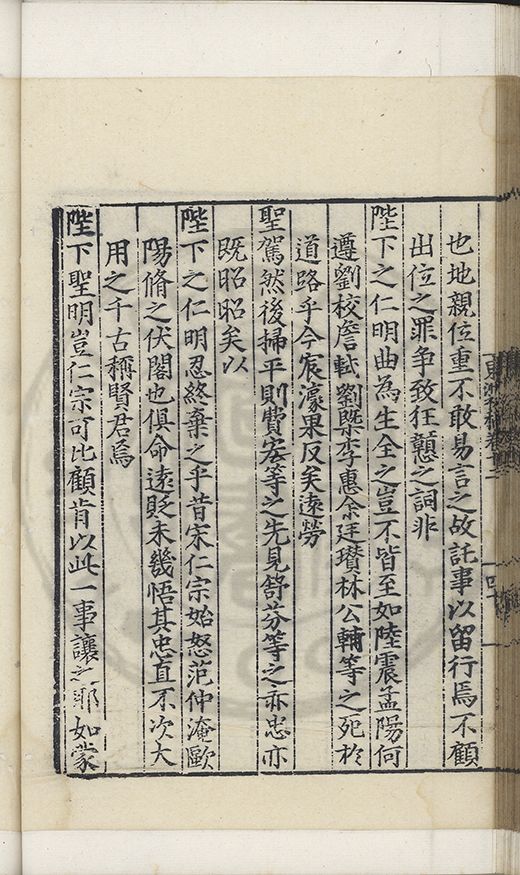 也地親位重不敢易言之故託事以留行焉不顧
出位之罪爭致狂戇之詞非
陛下之仁明曲為生全之豈不皆至如陸震孟陽何
遵劉校詹軾劉槩李惠余廷瓚林公輔等之死於
道路乎今宸濠果反矣遠勞
聖駕然後掃平則費宏等之先見舒芬等之亦忠亦
既昭昭矣以
陛下之仁明忍終棄之乎昔宋仁宗始怒范仲淹歐
陽脩之伏閣也俱命遠貶未幾悟其忠直不次大
用之千古稱賢君焉
陛下聖明豈仁宗可比顧肯以此一事讓之耶如蒙